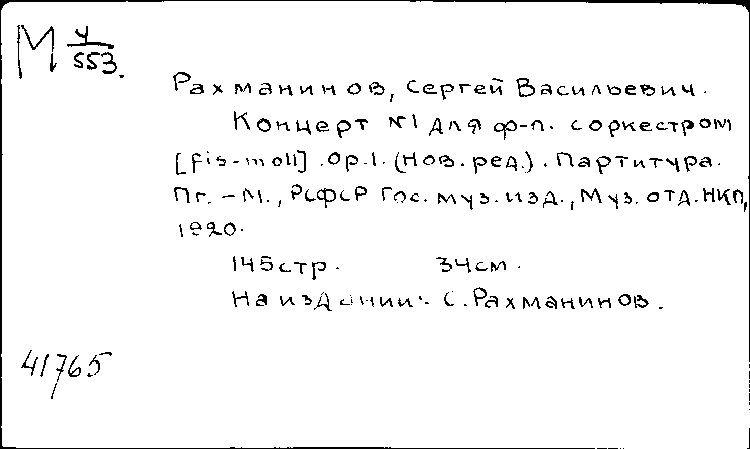 М У/553.
Рахманинов, Сергей Васильевич.
Концерт №1 для ф-п. с оркестром
[fis-moll]. Op.1. (Нов. ред.). Партитура.
Пг. – М., РСФСР Гос. муз. изд., Муз. отд. НКП,
1920.
145 стр. 34 см.
На издании: С. Рахманинов.
41765